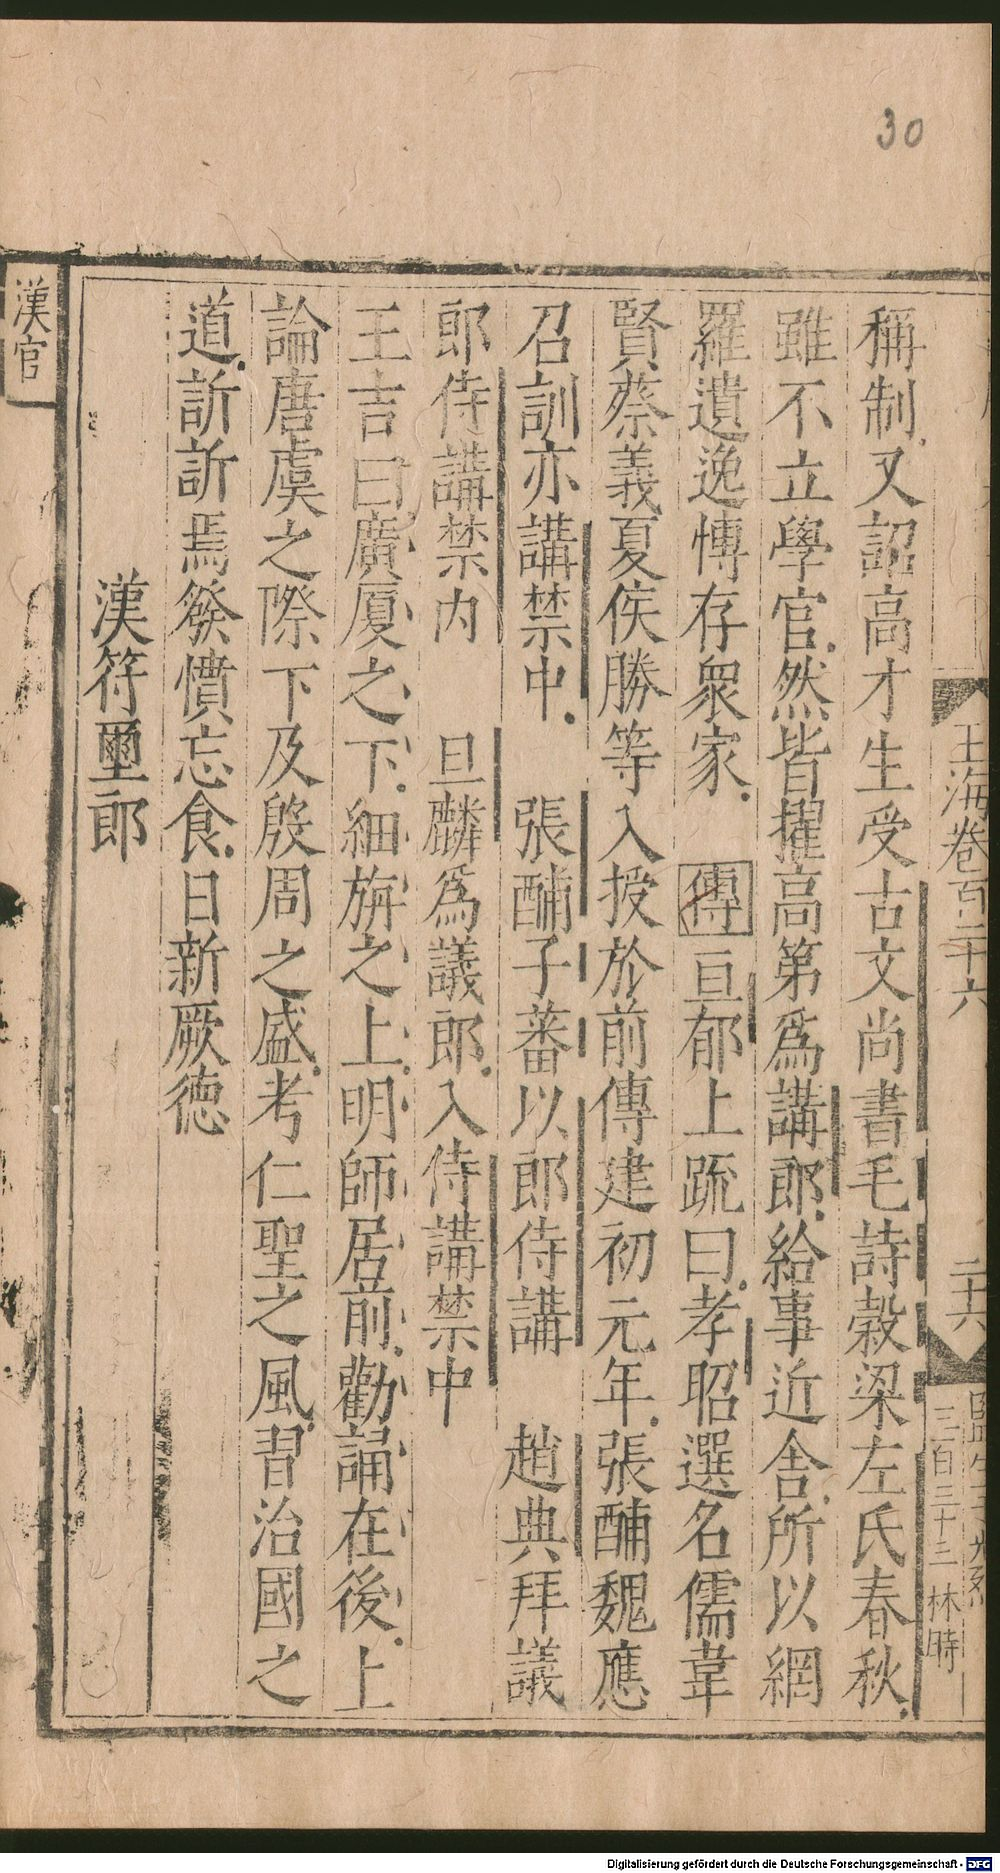 30
玉海卷百二十六
二十六
三百三十三
林時
稱制又詔高才生受古文尚書毛詩穀梁左氏春秋
雖不立學官然皆擢高第爲講郎給事近舍所以網
羅遺逸博存衆家 傳亘郁上疏曰孝昭選名儒韋
賢蔡義夏侯勝等入授於前傳建初元年張酺魏應
召訓亦講禁中 張酺子蕃以郎侍講 趙典拜議
郎侍講禁內 旦麟爲議郎入侍講禁中
王吉曰廣厦之下細旃之上明師居前勸誦在後上
論唐虞之際下及殷周之盛考仁聖之風習治國之
道訢訢焉發憤忘食日新厥德
漢符璽郎
漢官
Digitalisierung gefördert durch die Deutsche Forschungsgemeinschaft - DFG